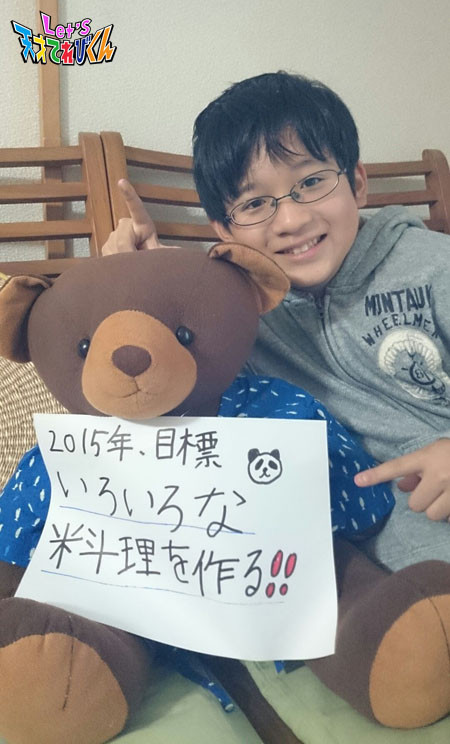 Let's
天才てれびくん
MONTAUK
WHEELMEN
2015年、目標
いろいろな
料理を作る!!